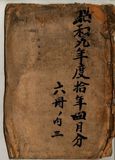 昭和九年度拾年四月分
六冊ノ内二